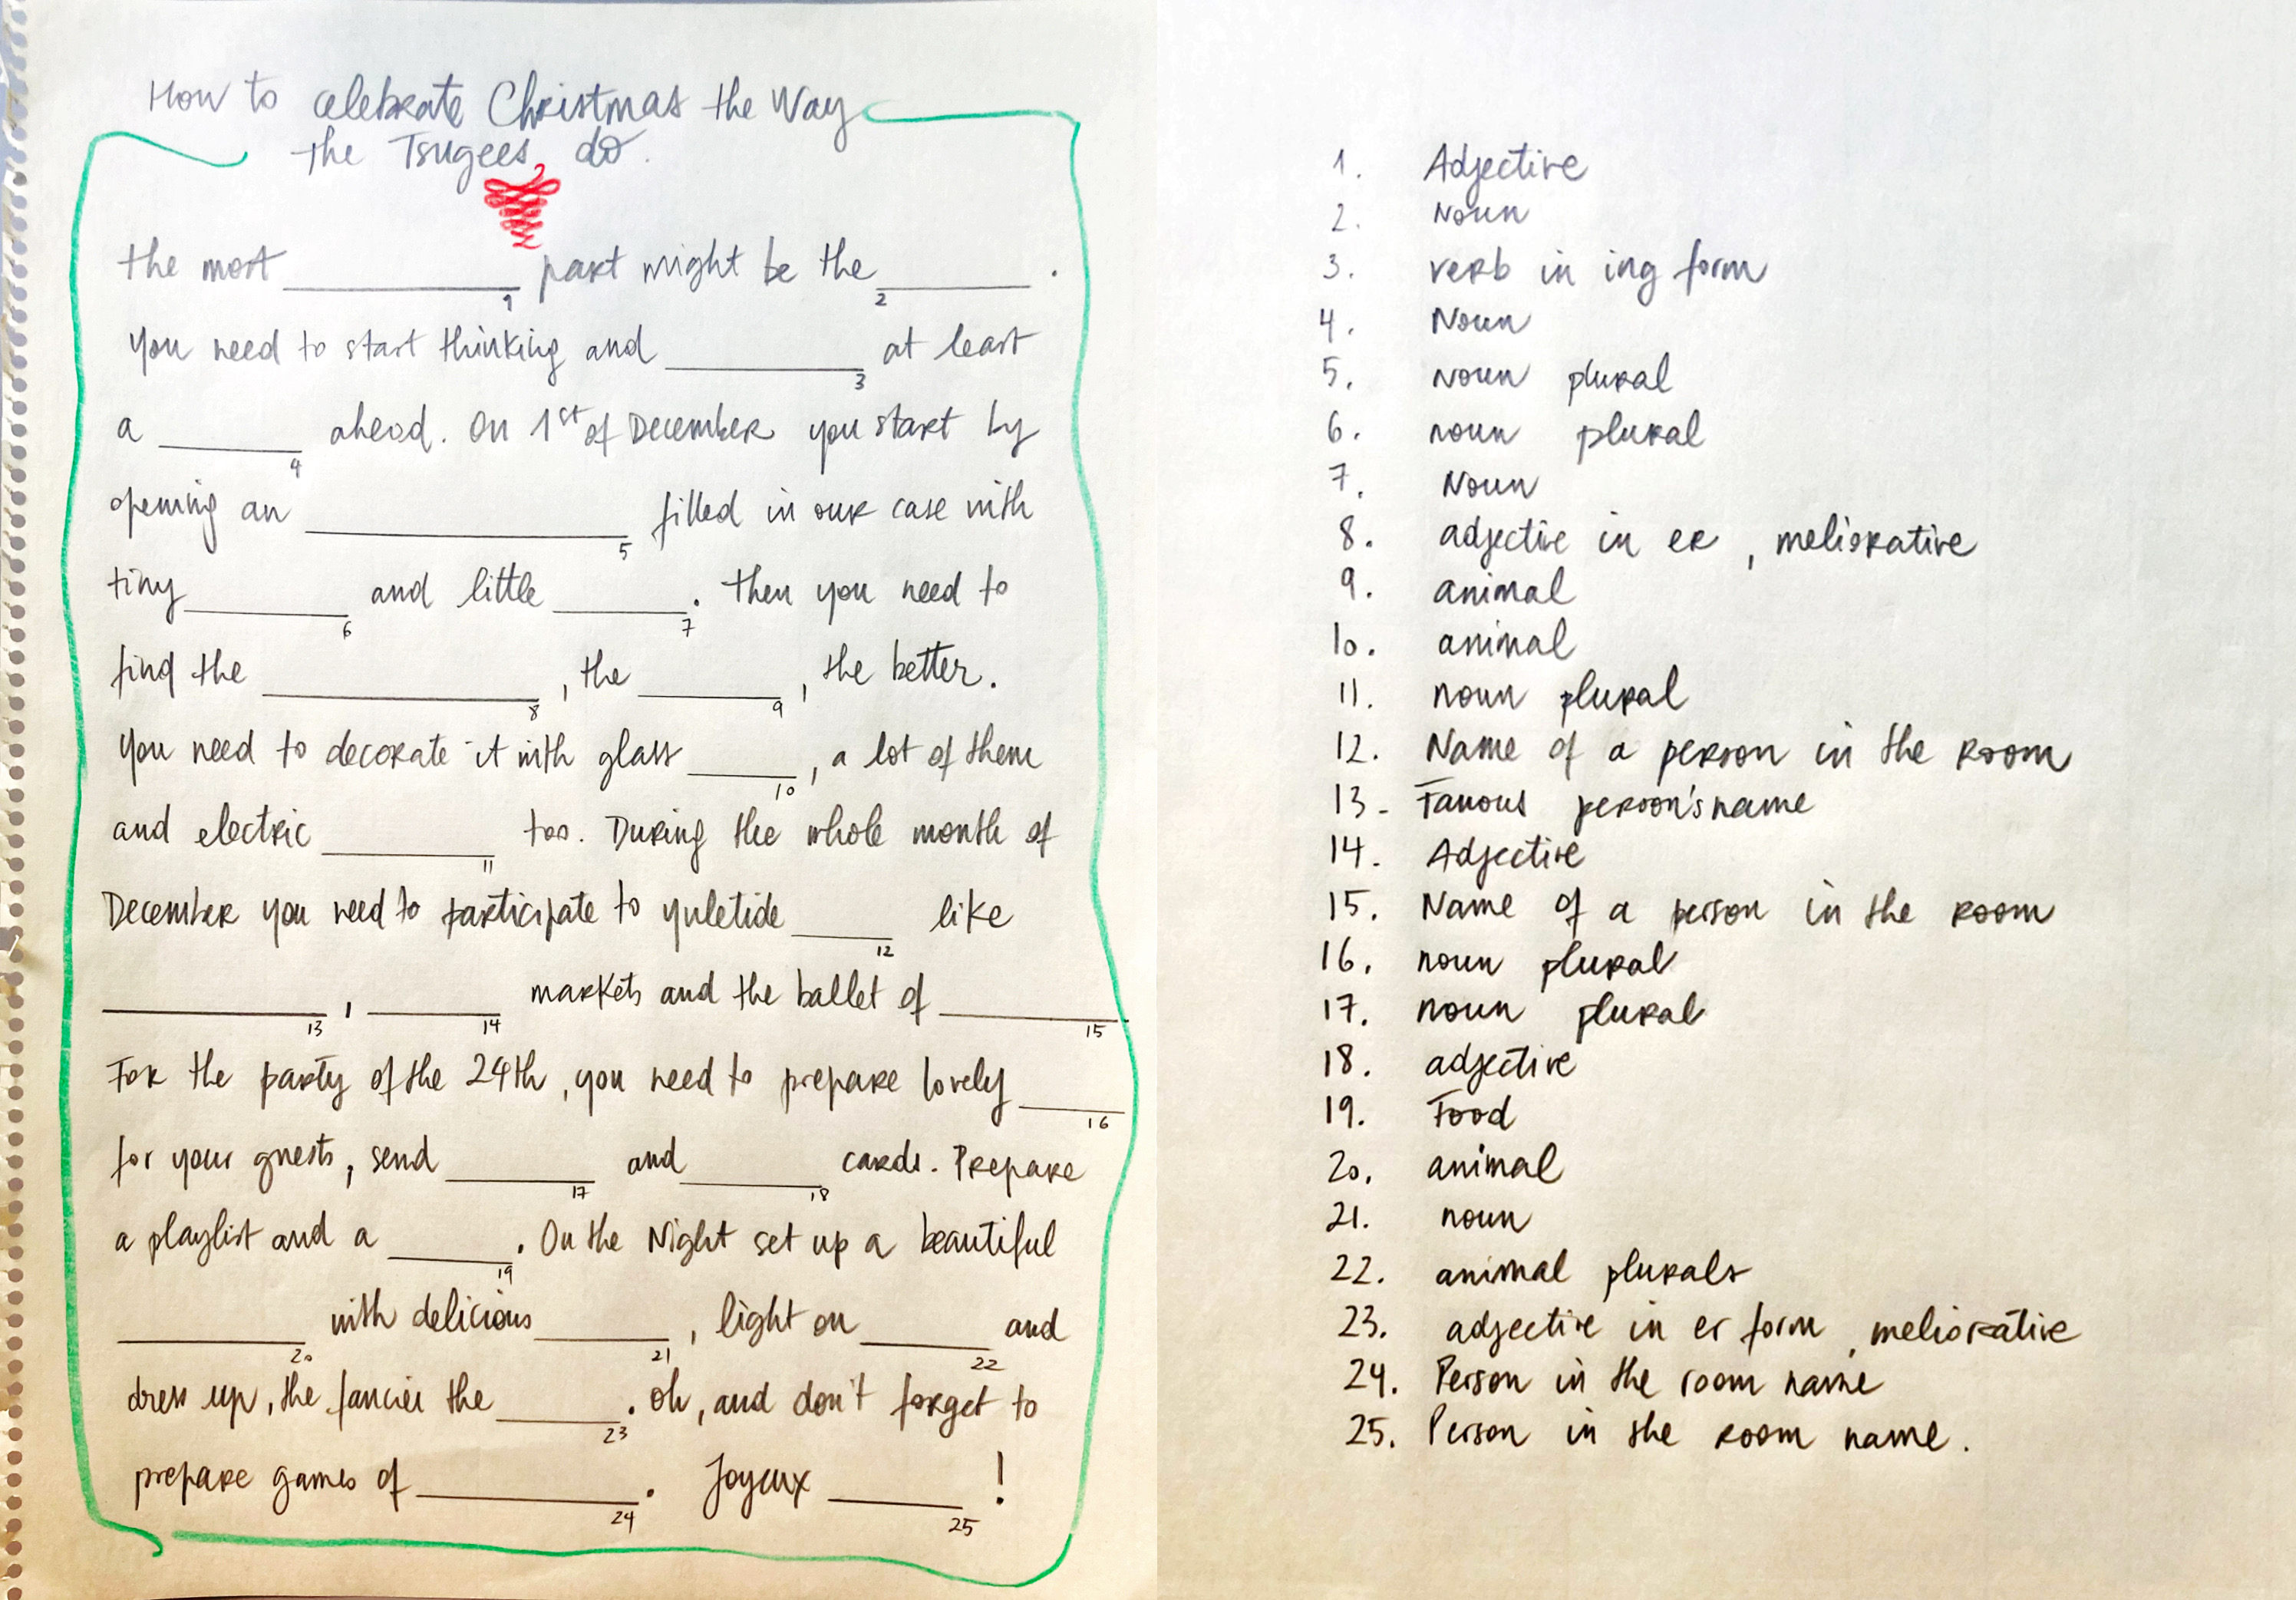 How to celebrate Christmas the Way
the Tsugees do.
the most ____________ part might be the ________ .
1 2
You need to start thinking and __________ at least
3
a _______ ahead. On 1st of December you start by
4
opening an ________________ filled in our case with
5
tiny ________ and little _______. Then you need to
6 7
find the ______________, the _______, the better.
8 9
You need to decorate it with glass _____, a lot of them
10
and electric _________ too. During the whole month of
11
December you need to participate to yuletide _____ like
12
___________, _______ markets and the ballet of _________
13 14 15
For the party of the 24th, you need to prepare lovely _____
16
for your guests, send _______ and _______ cards. Prepare
17 18
a playlist and a ______. On the Night set up a beautiful
19
_________ with delicious _______, light on _______ and
20 21 22
dress up, the fancier the ______. Oh, and don't forget to
23
prepare games of ___________. Joyeux _______ !
24 25
1. Adjective
2. Noun
3. verb in ing form
4. Noun
5. Noun plural
6. noun plural
7. Noun
8. adjective in er, meliorative
9. animal
10. animal
11. noun plural
12. Name of a person in the room
13- Famous person's name
14. Adjective
15. Name of a person in the room
16. noun plural
17. noun plural
18. adjective
19. Food
20. animal
21. noun
22. animal plurals
23. adjective in er form, meliorative
24. Person in the room name
25. Person in the room name.